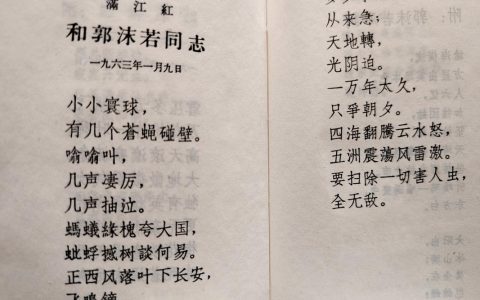 滿江紅
和郭沫若同志
一九六三年一月九日
小小寰球,
有几个蒼蝇碰壁。
嗡嗡叫,
几声凄厉,
几声抽泣。
螞蟻緣槐夸大国,
蚍蜉撼树談何易。
正西风落叶下长安,
飞鳴鏑。
从来急;
天地轉,
光阴迫。
一万年太久,
只爭朝夕。
四海翻騰云水怒,
五洲震荡风雷激。
要扫除一切害人虫,
全无敌。